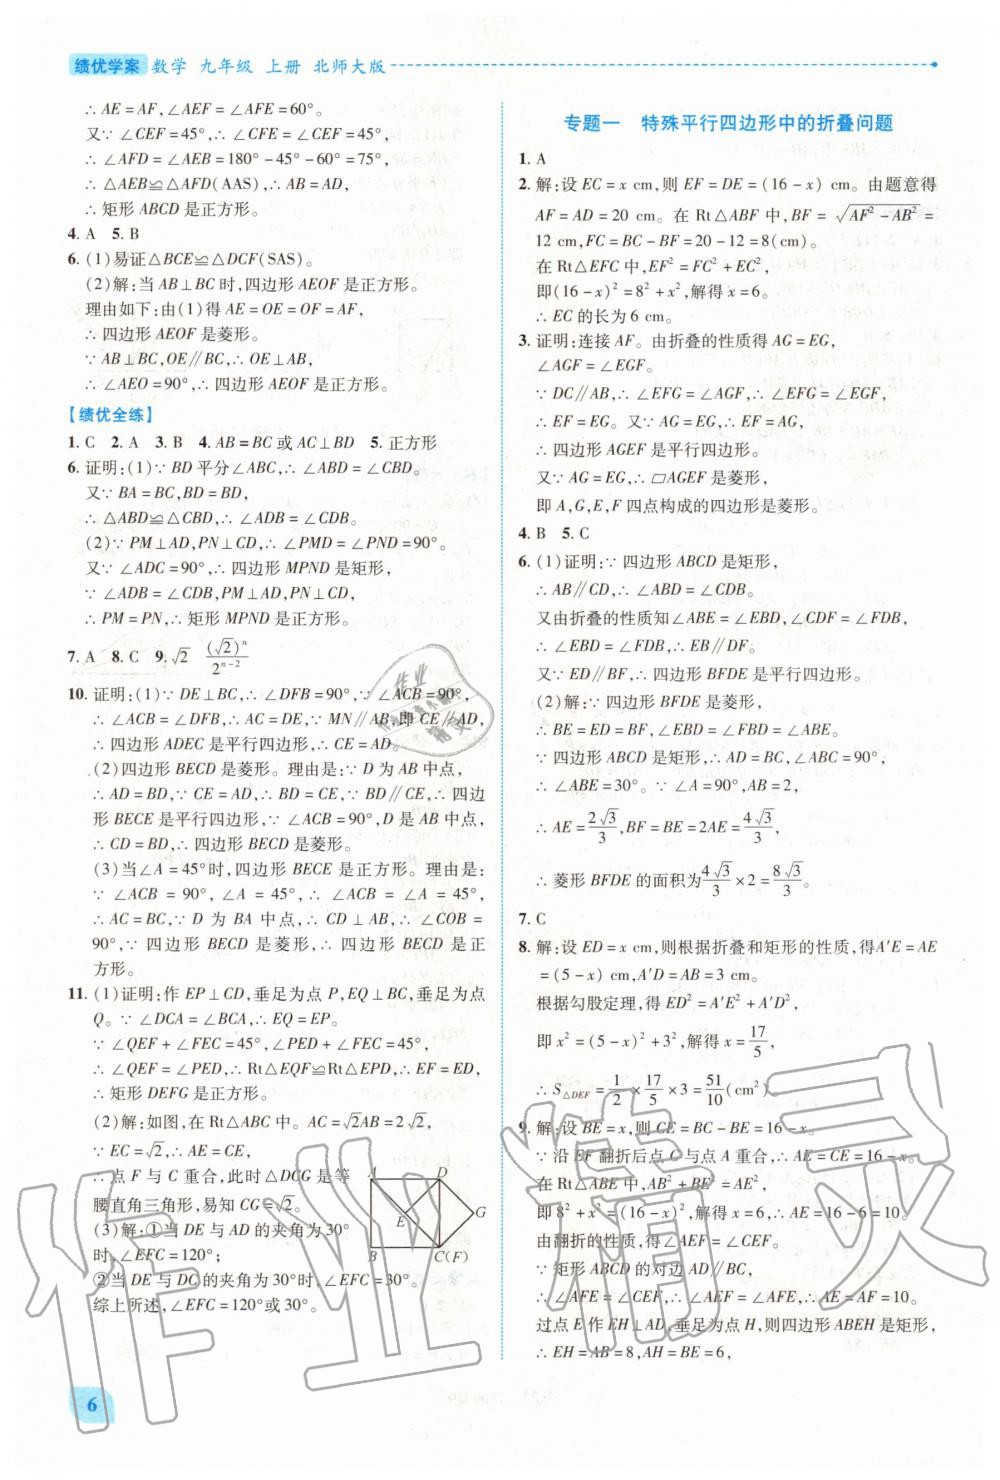 绩优学案 数学 九年级 上册 北师大版
∴ AE = AF,∠AEF = ∠AFE = 60°.
又∵ ∠CEF = 45°,∴ ∠CFE = ∠CEF = 45°,
∴ ∠AFD = ∠AEB = 180° - 45° - 60° = 75°,
∴ △AEB≌△AFD(AAS),∴ AB = AD,
∴ 矩形 ABCD 是正方形.
4. A 5. B
6. (1)易证△BCE≌△DCF(SAS).
(2)解:当 AB⊥BC 时,四边形 AEOF 是正方形.
理由如下:由(1)得 AE = OE = OF = AF,
∴ 四边形 AEOF 是菱形.
∵ AB⊥BC,OE∥BC,∴ OE⊥AB,
∴ ∠AEO = 90°,∴ 四边形 AEOF 是正方形.
【绩优全练】
1. C 2. A 3. B 4. AB = BC 或 AC⊥BD 5. 正方形
6. 证明:(1)∵ BD 平分∠ABC,∴ ∠ABD = ∠CBD.
又∵ BA = BC,BD = BD,
∴ △ABD≌△CBD,∴ ∠ADB = ∠CDB.
(2)∵ PM⊥AD,PN⊥CD,∴ ∠PMD = ∠PND = 90°.
又∵ ∠ADC = 90°,∴ 四边形 MPND 是矩形.
∵ ∠ADB = ∠CDB,PM⊥AD,PN⊥CD,
∴ PM = PN,∴ 矩形 MPND 是正方形.
7. A 8. C 9. √2 (√2)ⁿ/2ⁿ⁻²
10. 证明:(1)∵ DE⊥BC,∴ ∠DFB = 90°,∵ ∠ACB = 90°,
∴ ∠ACB = ∠DFB,∴ AC = DE,∵ MN∥AB,即 CE∥AD,
∴ 四边形 ADEC 是平行四边形,∴ CE = AD.
(2)四边形 BECD 是菱形. 理由是:∵ D 为 AB 中点,
∴ AD = BD,∵ CE = AD,∴ BD = CE,∵ BD∥CE,∴ 四边
形 BECE 是平行四边形,∵ ∠ACB = 90°,D 是 AB 中点,
∴ CD = BD,∴ 四边形 BECD 是菱形.
(3)当∠A = 45°时,四边形 BECE 是正方形. 理由是:
∵ ∠ACB = 90°,∠A = 45°,∴ ∠ABC = ∠A = 45°,
∴ AC = BC,∵ D 为 BA 中点,∴ CD⊥AB,∴ ∠COB =
90°,∵ 四边形 BECD 是菱形,∴ 四边形 BECD 是正
方形.
11. (1)证明:作 EP⊥CD,垂足为点 P,EQ⊥BC,垂足为点
Q. ∵ ∠DCA = ∠BCA,∴ EQ = EP.
∵ ∠QEF + ∠FEC = 45°,∠PED + ∠FEC = 45°,
∴ ∠QEF = ∠PED,∴ Rt△EQF≌Rt△EPD,∴ EF = ED,
∴ 矩形 DEFG 是正方形.
(2)解:如图,在 Rt△ABC 中. AC = √2AB = 2√2,
∵ EC = √2,∴ AE = CE,
∴ 点 F 与 C 重合,此时△DCG 是等
腰直角三角形,易知 CG = √2.
(3)解:①当 DE 与 AD 的夹角为 30°
时,∠EFC = 120°;
②当 DE 与 DC 的夹角为 30°时,∠EFC = 30°.
综上所述,∠EFC = 120°或 30°.
A D
E G
B C(F)
6
专题一 特殊平行四边形中的折叠问题
1. A
2. 解:设 EC = x cm,则 EF = DE = (16 - x) cm. 由题意得
AF = AD = 20 cm. 在 Rt△ABF 中,BF = √(AF² - AB²) =
12 cm,FC = BC - BF = 20 - 12 = 8(cm).
在 Rt△EFC 中,EF² = FC² + EC²,
即(16 - x)² = 8² + x²,解得 x = 6.
∴ EC 的长为 6 cm.
3. 证明:连接 AF. 由折叠的性质得 AG = EG,
∠AGF = ∠EGF.
∵ DC∥AB,∴ ∠EFG = ∠AGF,∴ ∠EFG = ∠EGF,
∴ EF = EG. 又∵ AG = EG,∴ EF = AG.
∴ 四边形 AGEF 是平行四边形.
又∵ AG = EG,∴ ▱AGEF 是菱形,
即 A,G,E,F 四点构成的四边形是菱形.
4. B 5. C
6. (1)证明:∵ 四边形 ABCD 是矩形,
∴ AB∥CD,∴ ∠ABD = ∠CDB.
又由折叠的性质知∠ABE = ∠EBD,∠CDF = ∠FDB,
∴ ∠EBD = ∠FDB,∴ EB∥DF.
又∵ ED∥BF,∴ 四边形 BFDE 是平行四边形.
(2)解:∵ 四边形 BFDE 是菱形,
∴ BE = ED = BF,∴ ∠EBD = ∠FBD = ∠ABE.
∵ 四边形 ABCD 是矩形,∴ AD = BC,∠ABC = 90°,
∴ ∠ABE = 30°. ∵ ∠A = 90°,AB = 2,
∴ AE = 2√3/3,BF = BE = 2AE = 4√3/3,
∴ 菱形 BFDE 的面积为 4√3/3 × 2 = 8√3/3.
7. C
8. 解:设 ED = x cm,则根据折叠和矩形的性质,得A′E = AE
= (5 - x) cm,A′D = AB = 3 cm.
根据勾股定理,得 ED² = A′E² + A′D²,
即 x² = (5 - x)² + 3²,解得 x = 17/5,
∴ S△DEF = 1/2 × 17/5 × 3 = 51/10(cm²).
9. 解:设 BE = x,则 CE = BC - BE = 16 - x.
∵ 沿 EF 翻折后点 C 与点 A 重合,∴ AE = CE = 16 - x.
在 Rt△ABE 中,AB² + BE² = AE²,
即 8² + x² = (16 - x)²,解得 x = 6,∴ AE = 16 - 6 = 10.
由翻折的性质,得 ∠AEF = ∠CEF.
∵ 矩形 ABCD 的对边 AD∥BC,
∴ ∠AFE = ∠CEF,∴ ∠AEF = ∠AFE,∴ AE = AF = 10.
过点 E 作 EH⊥AD,垂足为点 H,则四边形 ABEH 是矩形,
∴ EH = AB = 8,AH = BE = 6,
作业精灵